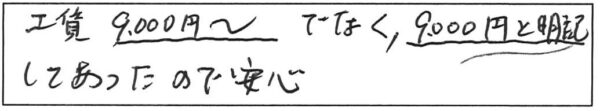 工賃 9,000円〜 でなく,9,000円と明記
してあったので安心